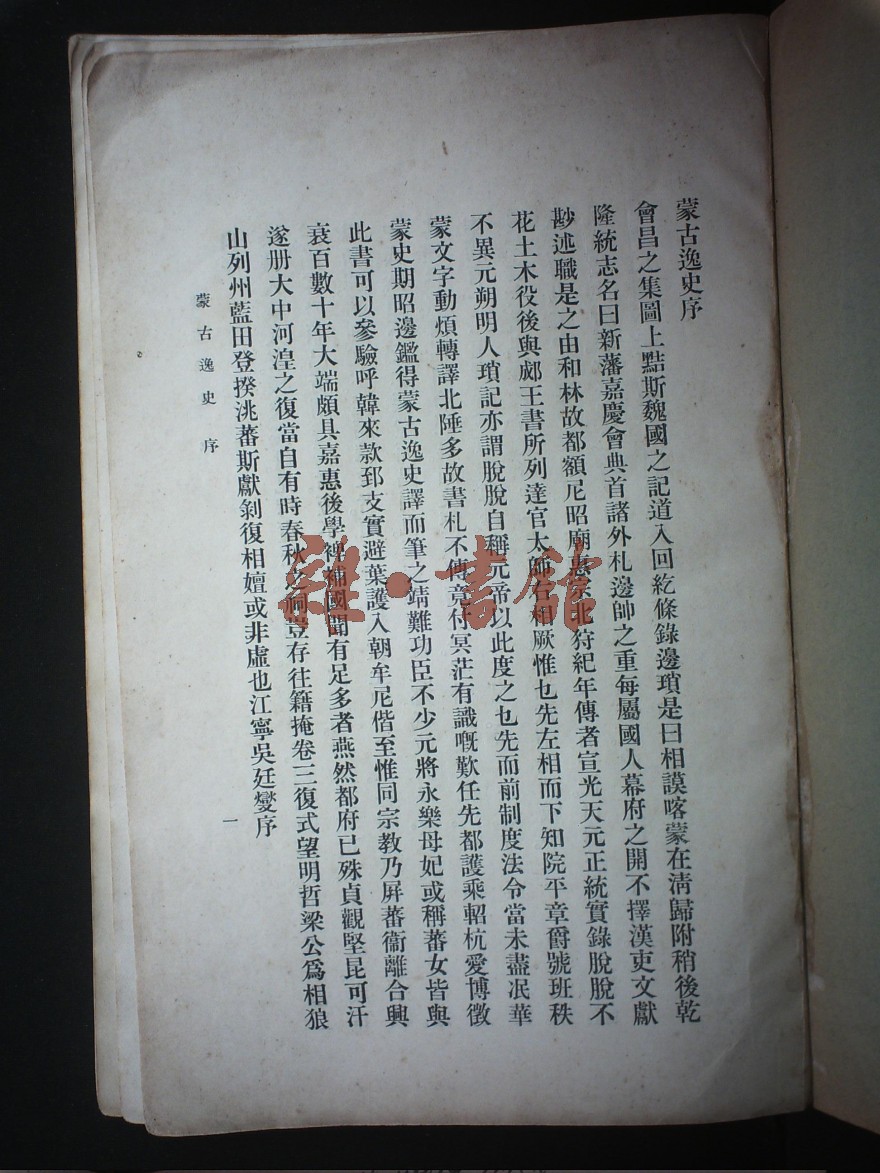 蒙古逸史序
會昌之集圖上黠斯魏國之記道入回紇條錄邊瑣是曰相謨喀蒙在淸歸附稍後乾
隆統志名曰新藩嘉慶會典首諸外札邊帥之重每屬國人幕府之開不擇漢吏文獻
尠述職是之由和林故都額尼昭廟惠宗北狩紀年傳者宣光天元正統實錄脫脫不
花土木役後與郕王書所列達官太師右相厥惟乜先左相而下知院平章爵號班秩
不異元朔明人瑣記亦謂脫脫自稱元帝以此度之乜先而前制度法令當未盡冺華
蒙文字動煩轉譯北陲多故書札不傳竟付冥茫有識嘅歎任先都護乘軺杭愛博徵
蒙史期昭邊鑑得蒙古逸史譯而筆之靖難功臣不少元將永樂母妃或稱蕃女皆與
此書可以參驗呼韓來款郅支實避葉護入朝牟尼偕至惟同宗教乃屏蕃衞離合興
衰百數十年大端頗具嘉惠後學裨補國聞有足多者燕然都府已殊貞觀堅昆可汗
遂册大中河湟之復當自有時春秋之祠豈存往籍掩卷三復式望明哲梁公爲相狼
山列州藍田登揆洮蕃斯獻剝復相嬗或非虛也江寧吳廷燮序
蒙古逸史序
一
雜·書館